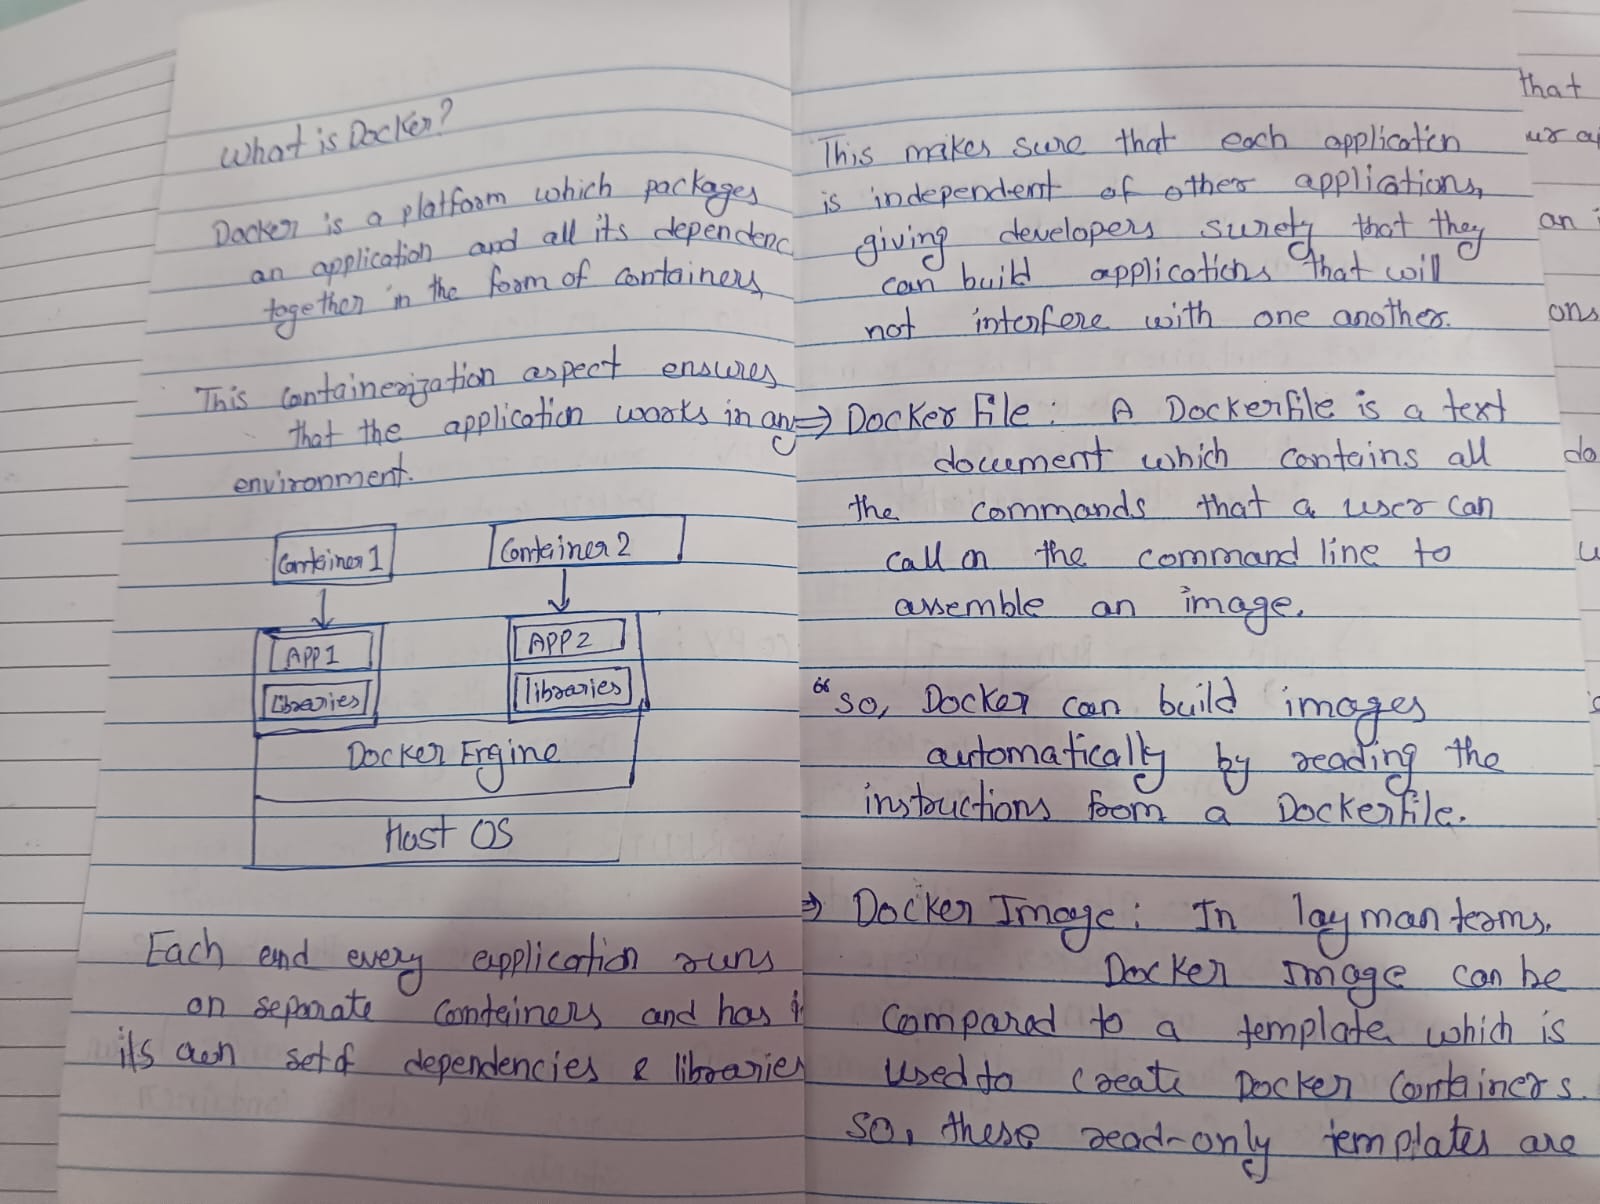 What is Docker?
Docker is a platform which packages
an application and all its dependenc
together in the form of containers,
This containerization aspect ensures
that the application works in any
environment.
Container 1
Container 2
APP1
APP2
libraries
libraries
Docker Engine
Host OS
Each and every application runs
on separate containers and has
its own set of dependencies & libraries
This makes sure that each application
is independent of other applications,
giving developers surety that they
can build applications that will
not interfere with one another.
⇒ Docker File: A Dockerfile is a text
document which contains all
the commands that a user can
call on the command line to
assemble an image.
“so, Docker can build images
automatically by reading the
instructions from a Dockerfile.
⇒ Docker Image: In layman terms.
Docker Image can be
compared to a template which is
used to create Docker Containers.
so, these read-only templates are
that
ur
an
ons
do